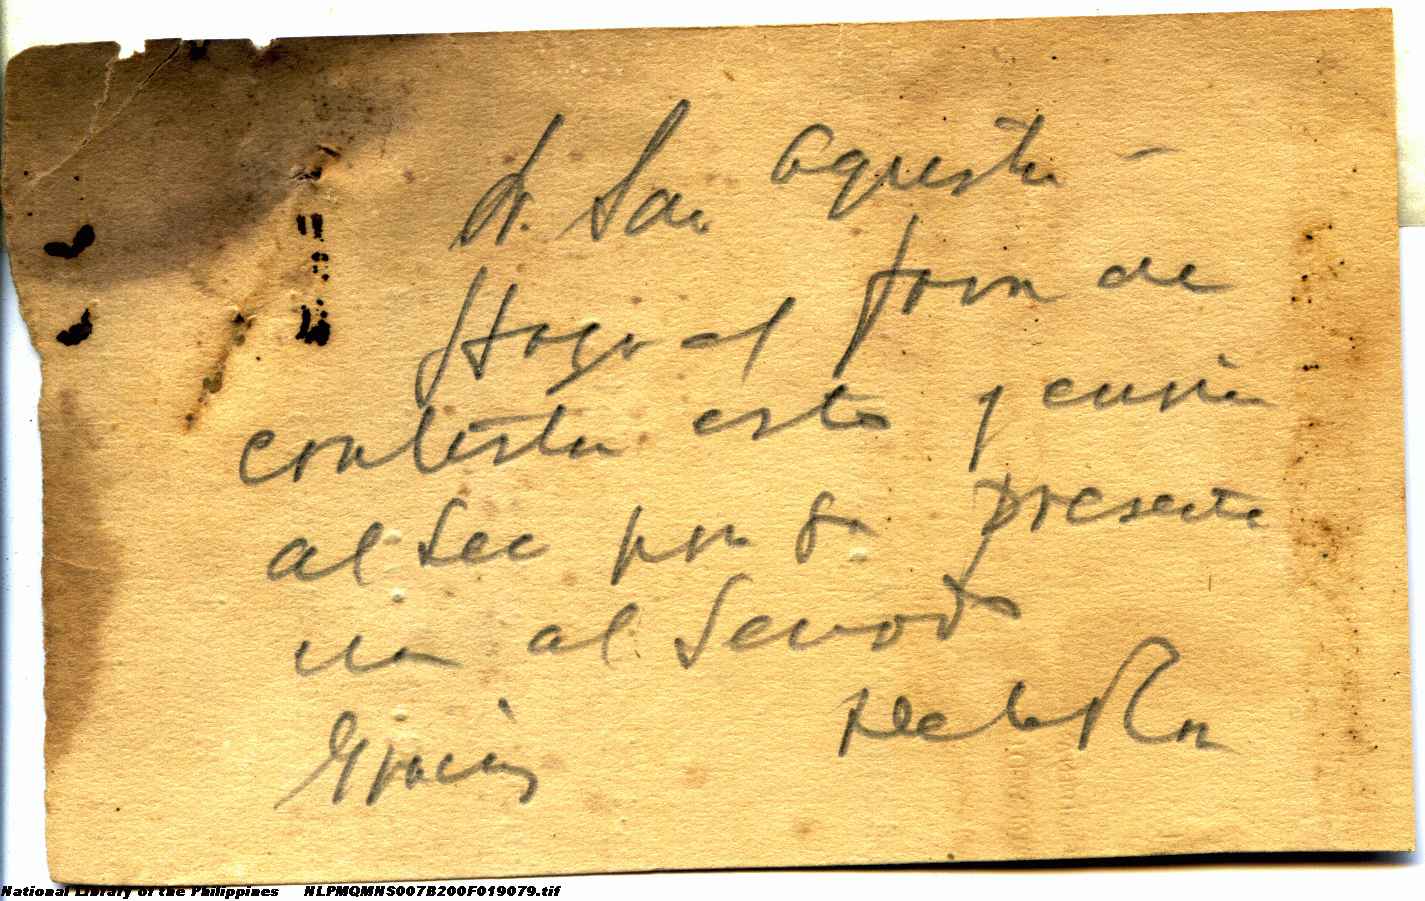 Sr. San Agustin –
Haga el favor de
contestar esta y enviar
al Sec para
al Senado
Gracias
National Library of the Philippines NLPMQMNS007B200F019079.tif